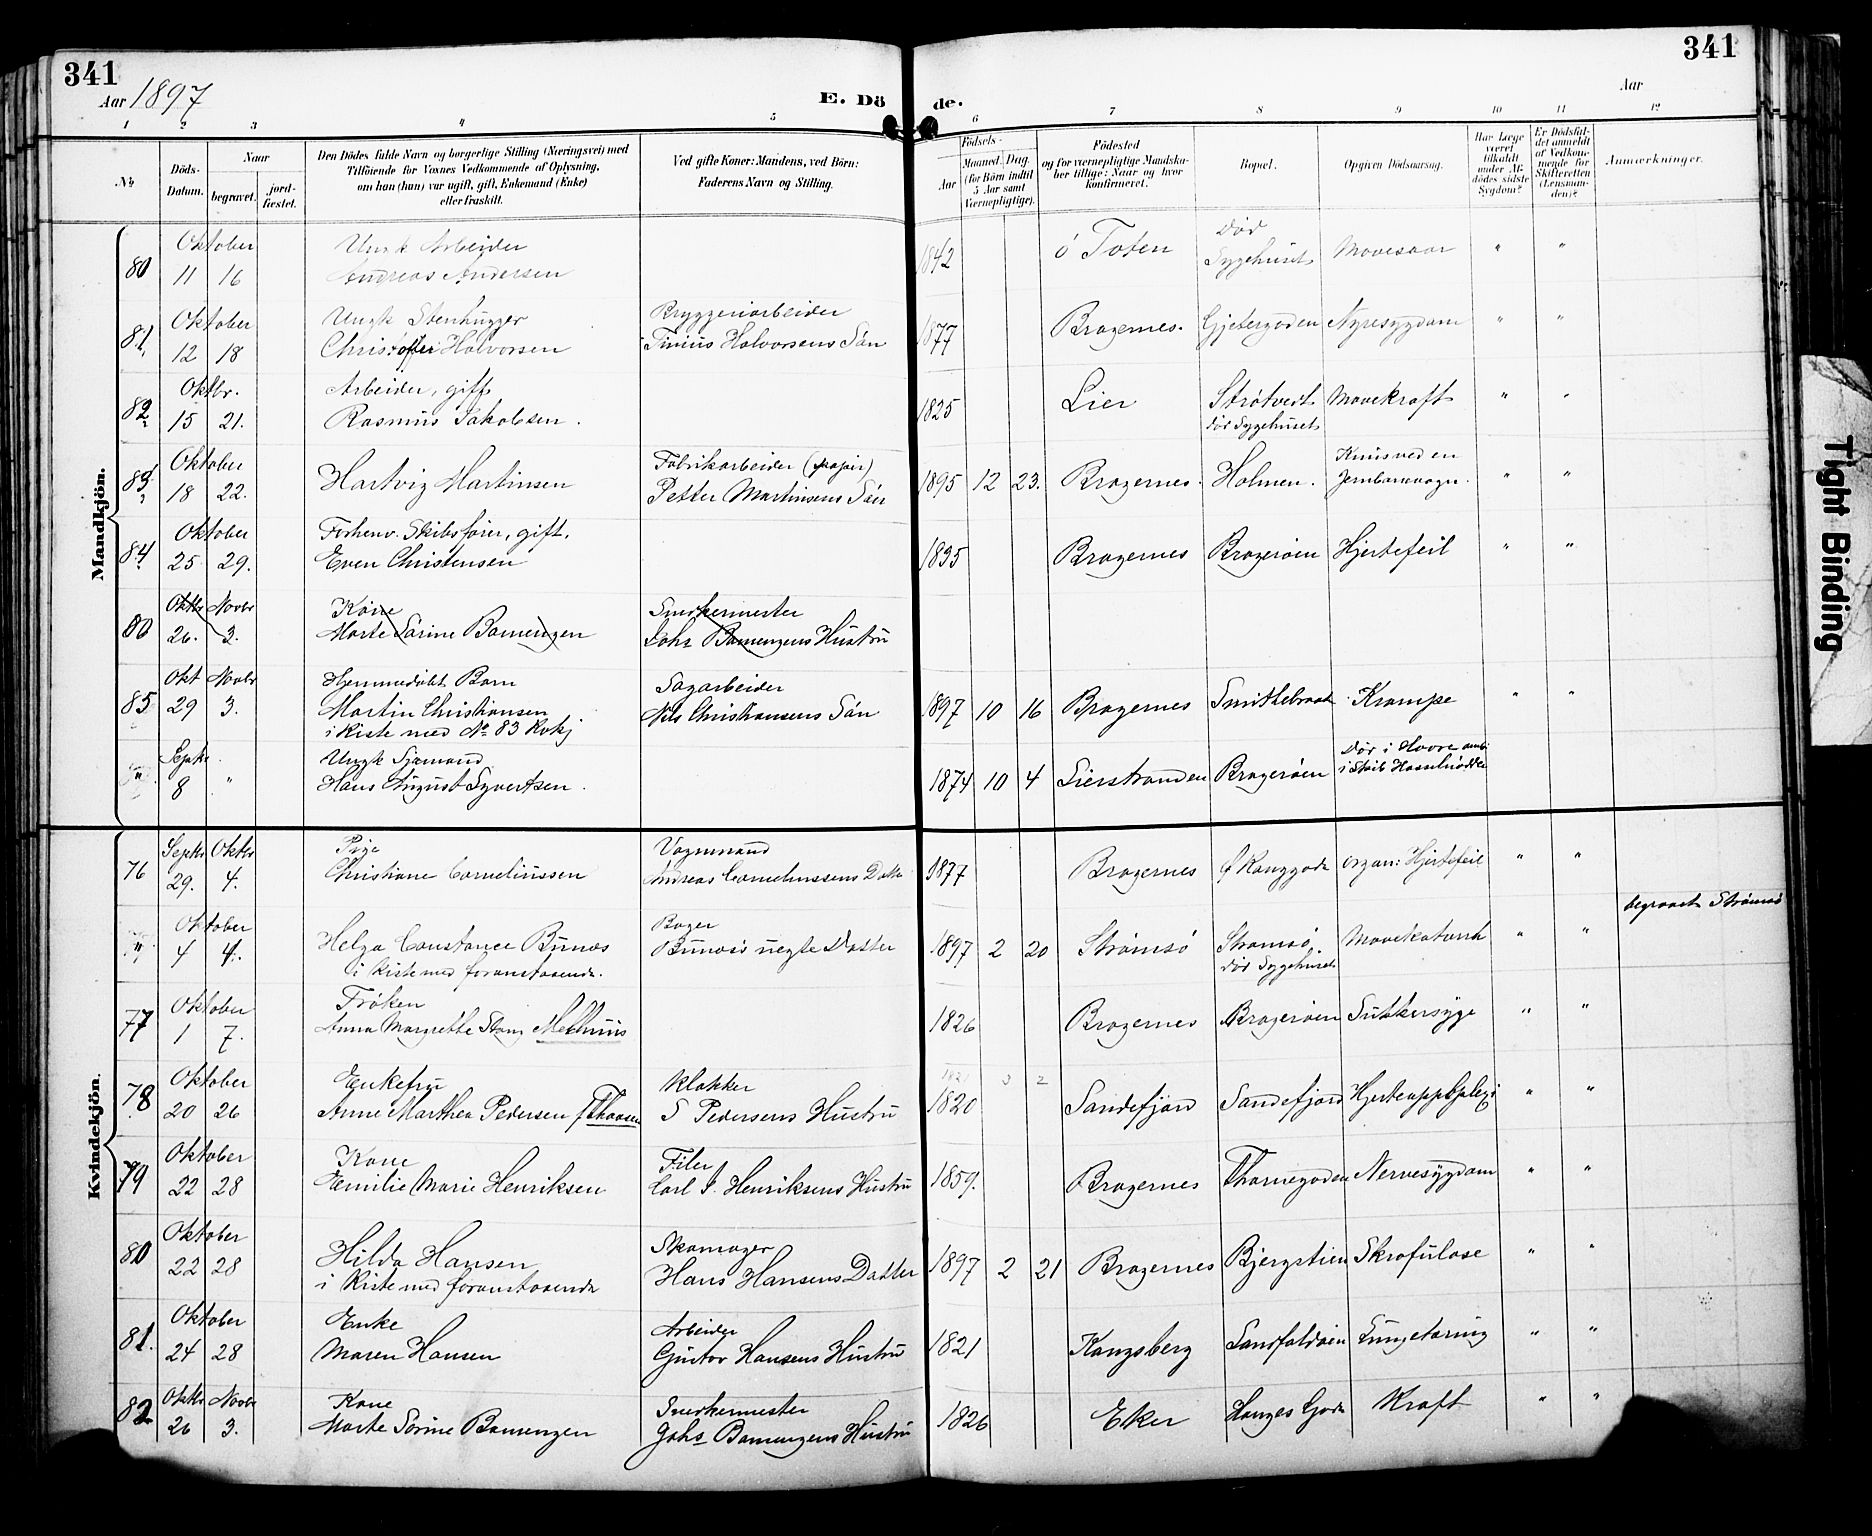 341
Aar 1897
E. Dö
de.
341
Aar
1 2 3 4 5 6 7 8 9 10 11 12
No
Döds-Datum.
Naar
begravet.
jord-fæstet.
Den Dödes fulde Navn og borgerlige Stilling (Næringsvei) med
Tilföiende for Voxnes Vedkommende af Oplysning,
om han (hun) var ugift, gift, Enkemand (Enke)
eller fraskilt.
Ved gifte Koner: Mandens, ved Börn:
Faderens Navn og Stilling.
Födsels-
Aar
Maaned. Dag.
(for Börn indtil
5 Aar samt
Værnepligtige).
Födested
og for værnepligtige Mandska-
ber tillige: Naar og hvor
konfirmeret.
Bopæl.
Opgiven Dödsaarsag.
Har Læge
været
tilkaldt
under Af-
dödes sidste
Sygdom?
Er Dödsfal-
det anmeldt
af Vedkom-
mende for
Skifteretten
(Lensman-
den)?
Anmærkninger.
Mandkjön.
Oktober Ungk Arbeider Död
80 11 16 Andreas Andersen 1842 ö Toten Sygehuset Mavesaar " "
Oktober Ungk Stenhugger Bryggeriarbeider
81 12 18 Christoffer Halvorsen Tinius Halvorsens Sön 1877 Bragernes. Gjetergaden Nyresygdom " "
Oktbr. Arbeider, gift
82 15 21. Rasmus Jakobsen. 1825 Lier Strøtvedt Mavekraft " "
död Sygehuset
Oktober Fabrikarbeider (papir) Knust ved en
83 18 22. Hartvig Martinsen Petter Martinsens Sön 1895 12 23. Bragernes. Holmen. Jernbanevogn. " "
Oktober Forhenv. Skibsfører, gift.
84 25 29. Even Christensen 1835 Bragernes Bragerøen Hjertefeil " "
Oktbr Novbr Kone Snedkermester
80 26. 3. Marte Sørine Bamengen Johs Bamengens Hustru
Okt Novbr Hjemmedøbt Barn Sagarbeider
85 29 3. Martin Christiansen Nils Christiansens Sön 1897 10 16 Bragernes Krampe " "
i Kiste med No 83
Septbr. Ungk Sjømand Död i Havre
" 8 " Hans August Syvertsen. 1874 10 4 Lierstranden Bragerøen i Skib
Kvindekjön.
Septbr Oktbr Pige Vognmand
76 29. 4. Christiane Corneliussen Andreas Corneliussens Datter 1877 Bragernes organ: Hjertefeil " "
begravet Strømsø
Oktober Bager
" 4 4. Helga Constance Bunæs Bunæs's uegte Datter 1897 2 20 Strømsø Strømsø. Mavekatarrh " "
i Kiste med foranstaaende. död Sygehuset
Oktober Frøken
77 1 7. Anna Margrethe Stang Melhuus 1826 Bragernes Bragerøen Sukkersyge " "
Oktober Enkefru Klokker 1821 3 2
78 20 26 Anne Marthea Pedersen f Thaasen S Pedersens Hustru 1820 Sandefjord Sandefjord " "
Oktober Kone Filer
79 22 28 Emilie Marie Henriksen Carl J. Henriksens Hustru 1859. Bragernes Thornegaden Nervesygdom " "
Oktober Skomager
80 22 28 Hilda Hansen Hans Hansens Datter 1897 2 21 Bragernes Bjergstien Skrofulose " "
i Kiste med foranstaaende
Oktober Enke Arbeider
81. 24 28 Maren Hansen Gustav Hansens Hustru 1821 Kongsberg Landfaldøen Lungetæring " "
Oktbr Novbr Kone Snedkermester
82 26 3. Marte Sørine Bamengen Johs Bamengens Hustru 1826 Eker Hauges Gade Kraft " "
Tight Binding